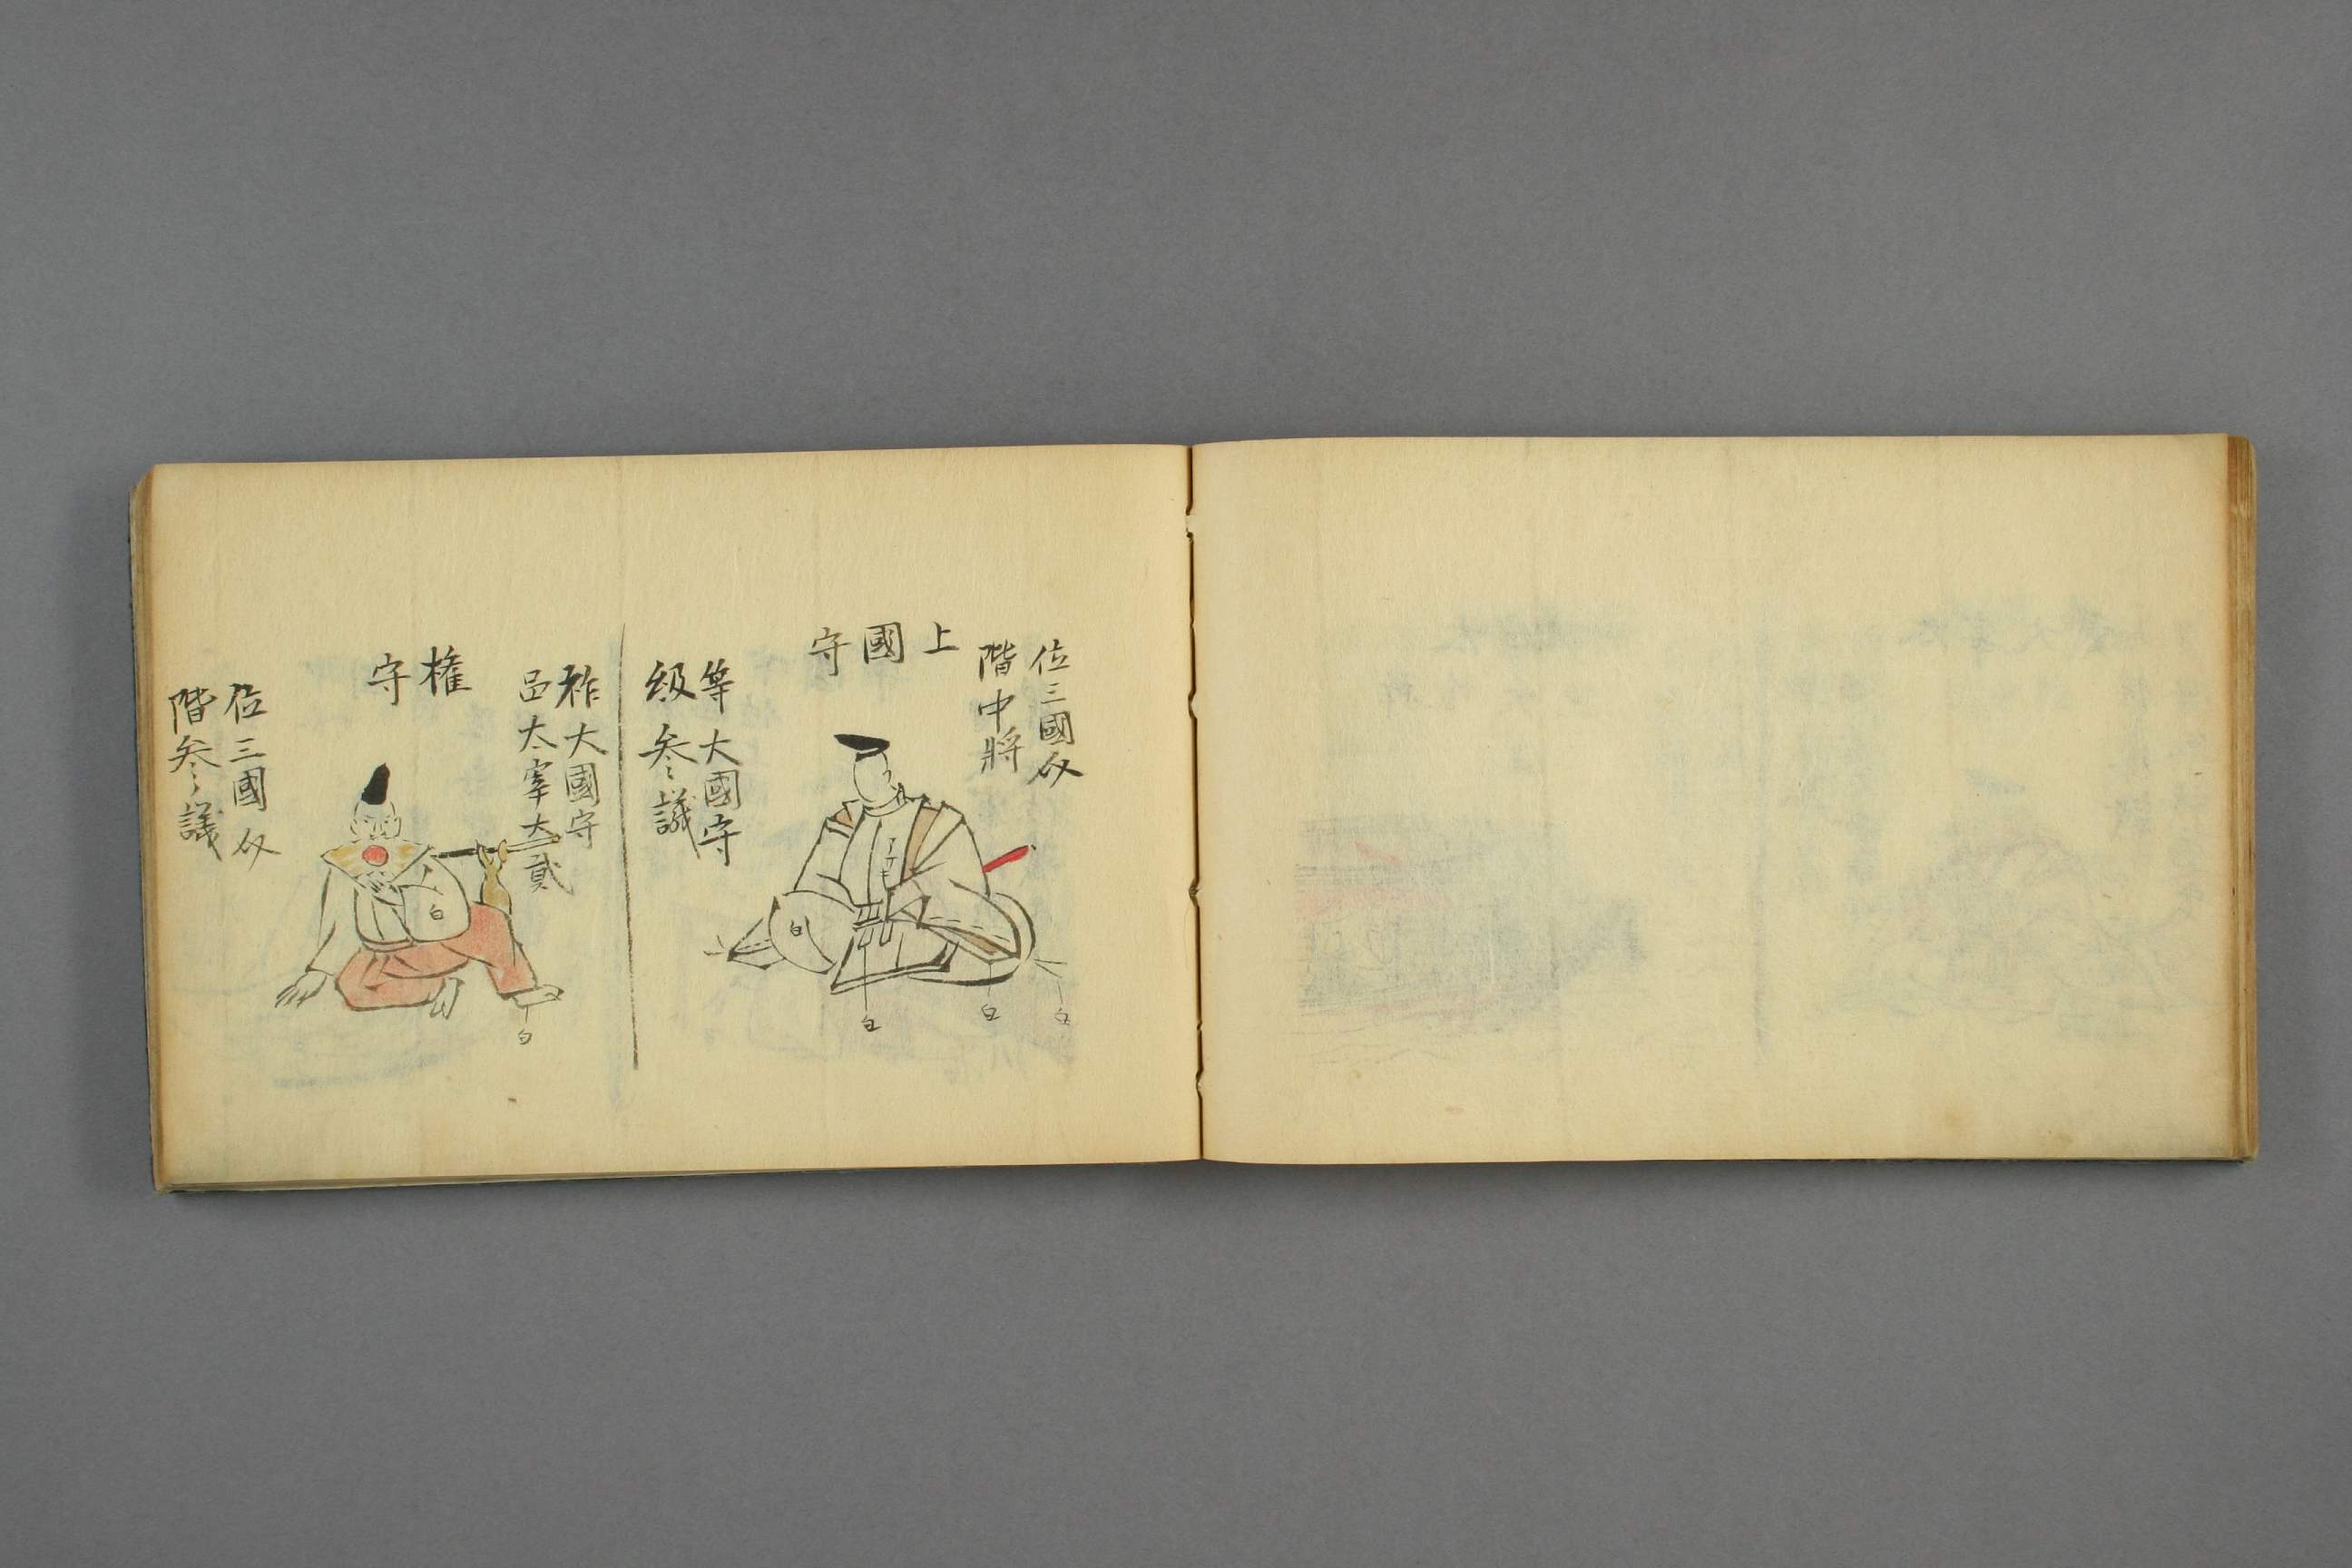 位三國仪
階中將
上國守
等大國守
級参議
白
白
白
白
祚大國守
品太宰大貳
権守
白
白
位三國仪
階参議